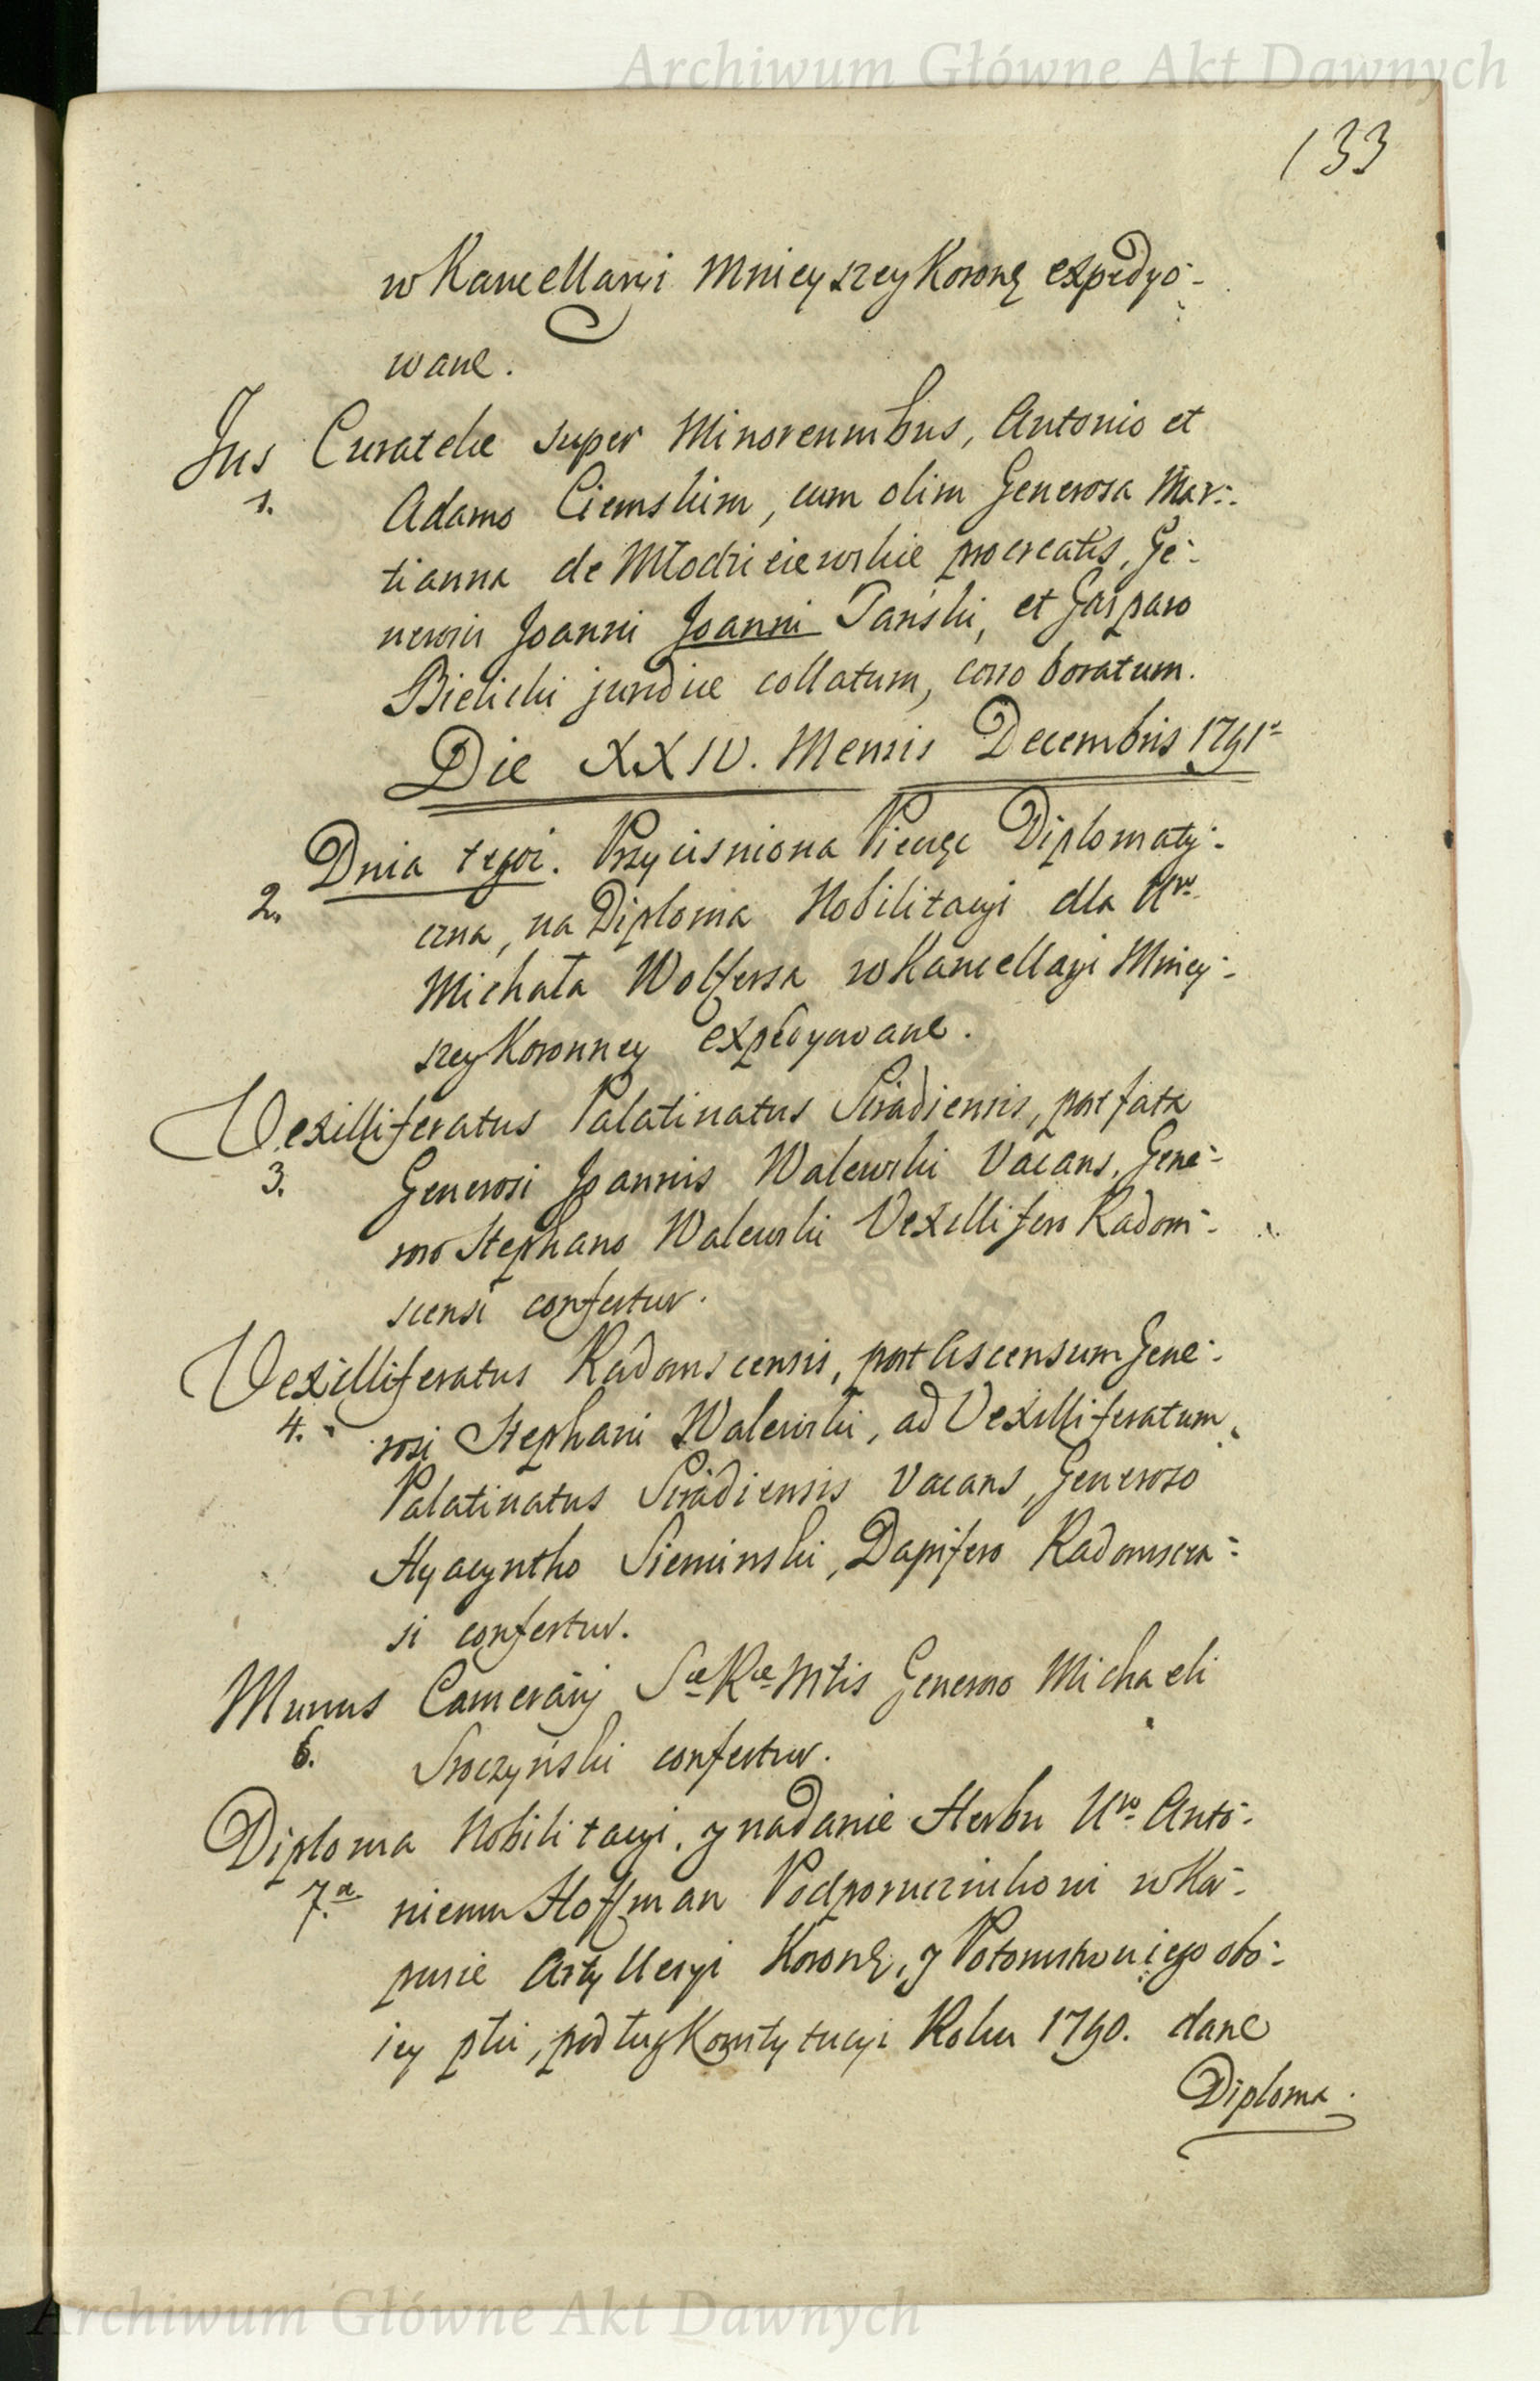 Archiwum Główne Akt Dawnych
133
w Kancellaryi Mnieyszey Koronę expedyo-
wane.
Jus Curatelæ super Minorennibus, Antonio et
1. Adamo Ciemskim, cum olim Generosa Mar-
tianna de Młodzieiewskie procreatis, Ge-
nerosis Joanni Joanni Tański, et Gasparo
Bielicki juridice collatum, corroboratum.
Die XXIV. Mensis Decembris 1791
Dnia tegoż. Przyciśniona Pieczęć Diplomaty-
2. czna, na Diploma Nobilitacyi dla Uro
Michała Wolffersa w Kancellaryi Mniey-
szey Koronney expedyowane.
Vexilliferatus Palatinatus Siradiensis, post fata
3. Generosi Joannis Walewski Vacans, Gene-
roso Stephano Walewski Vexillifero Radom-
scensi confertur.
Vexilliferatus Radomscensis, post Ascensum Gene-
4. rosi Stephani Walewski, ad Vexilliferatum
Palatinatus Siradiensis Vacans, Generoso
Hyacyntho Siemiński, Dapifero Radomscen-
si confertur.
Munus Camerarij Sæ Ræ Mtis Generoso Michaeli
6. Sroczyński confertur.
Diploma Nobilitacyi, y nadanie Herbu Uro Anto-
7.a niemu Hoffman Podporucznikowi w Kor-
pusie Artylleryi Koronę, y Potomstwu iego obo-
iey płci, podług Konstytucyi Roku 1790. dane
Diploma.
Archiwum Główne Akt Dawnych